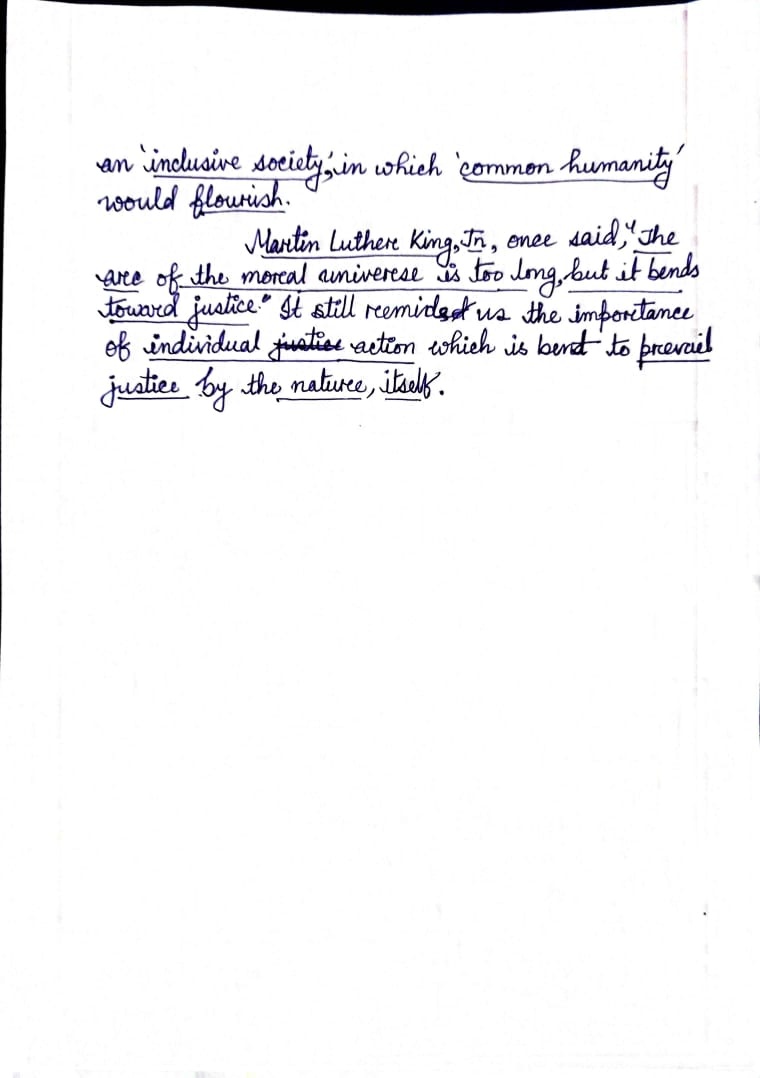 an 'inclusive society', in which 'common humanity'
would flourish.
Martin Luther King, Jr, once said, "The
arc of the moral universe is too long, but it bends
toward justice." It still reminds us the importance
of individual justice action which is bent to prevail
justice by the nature, itself.